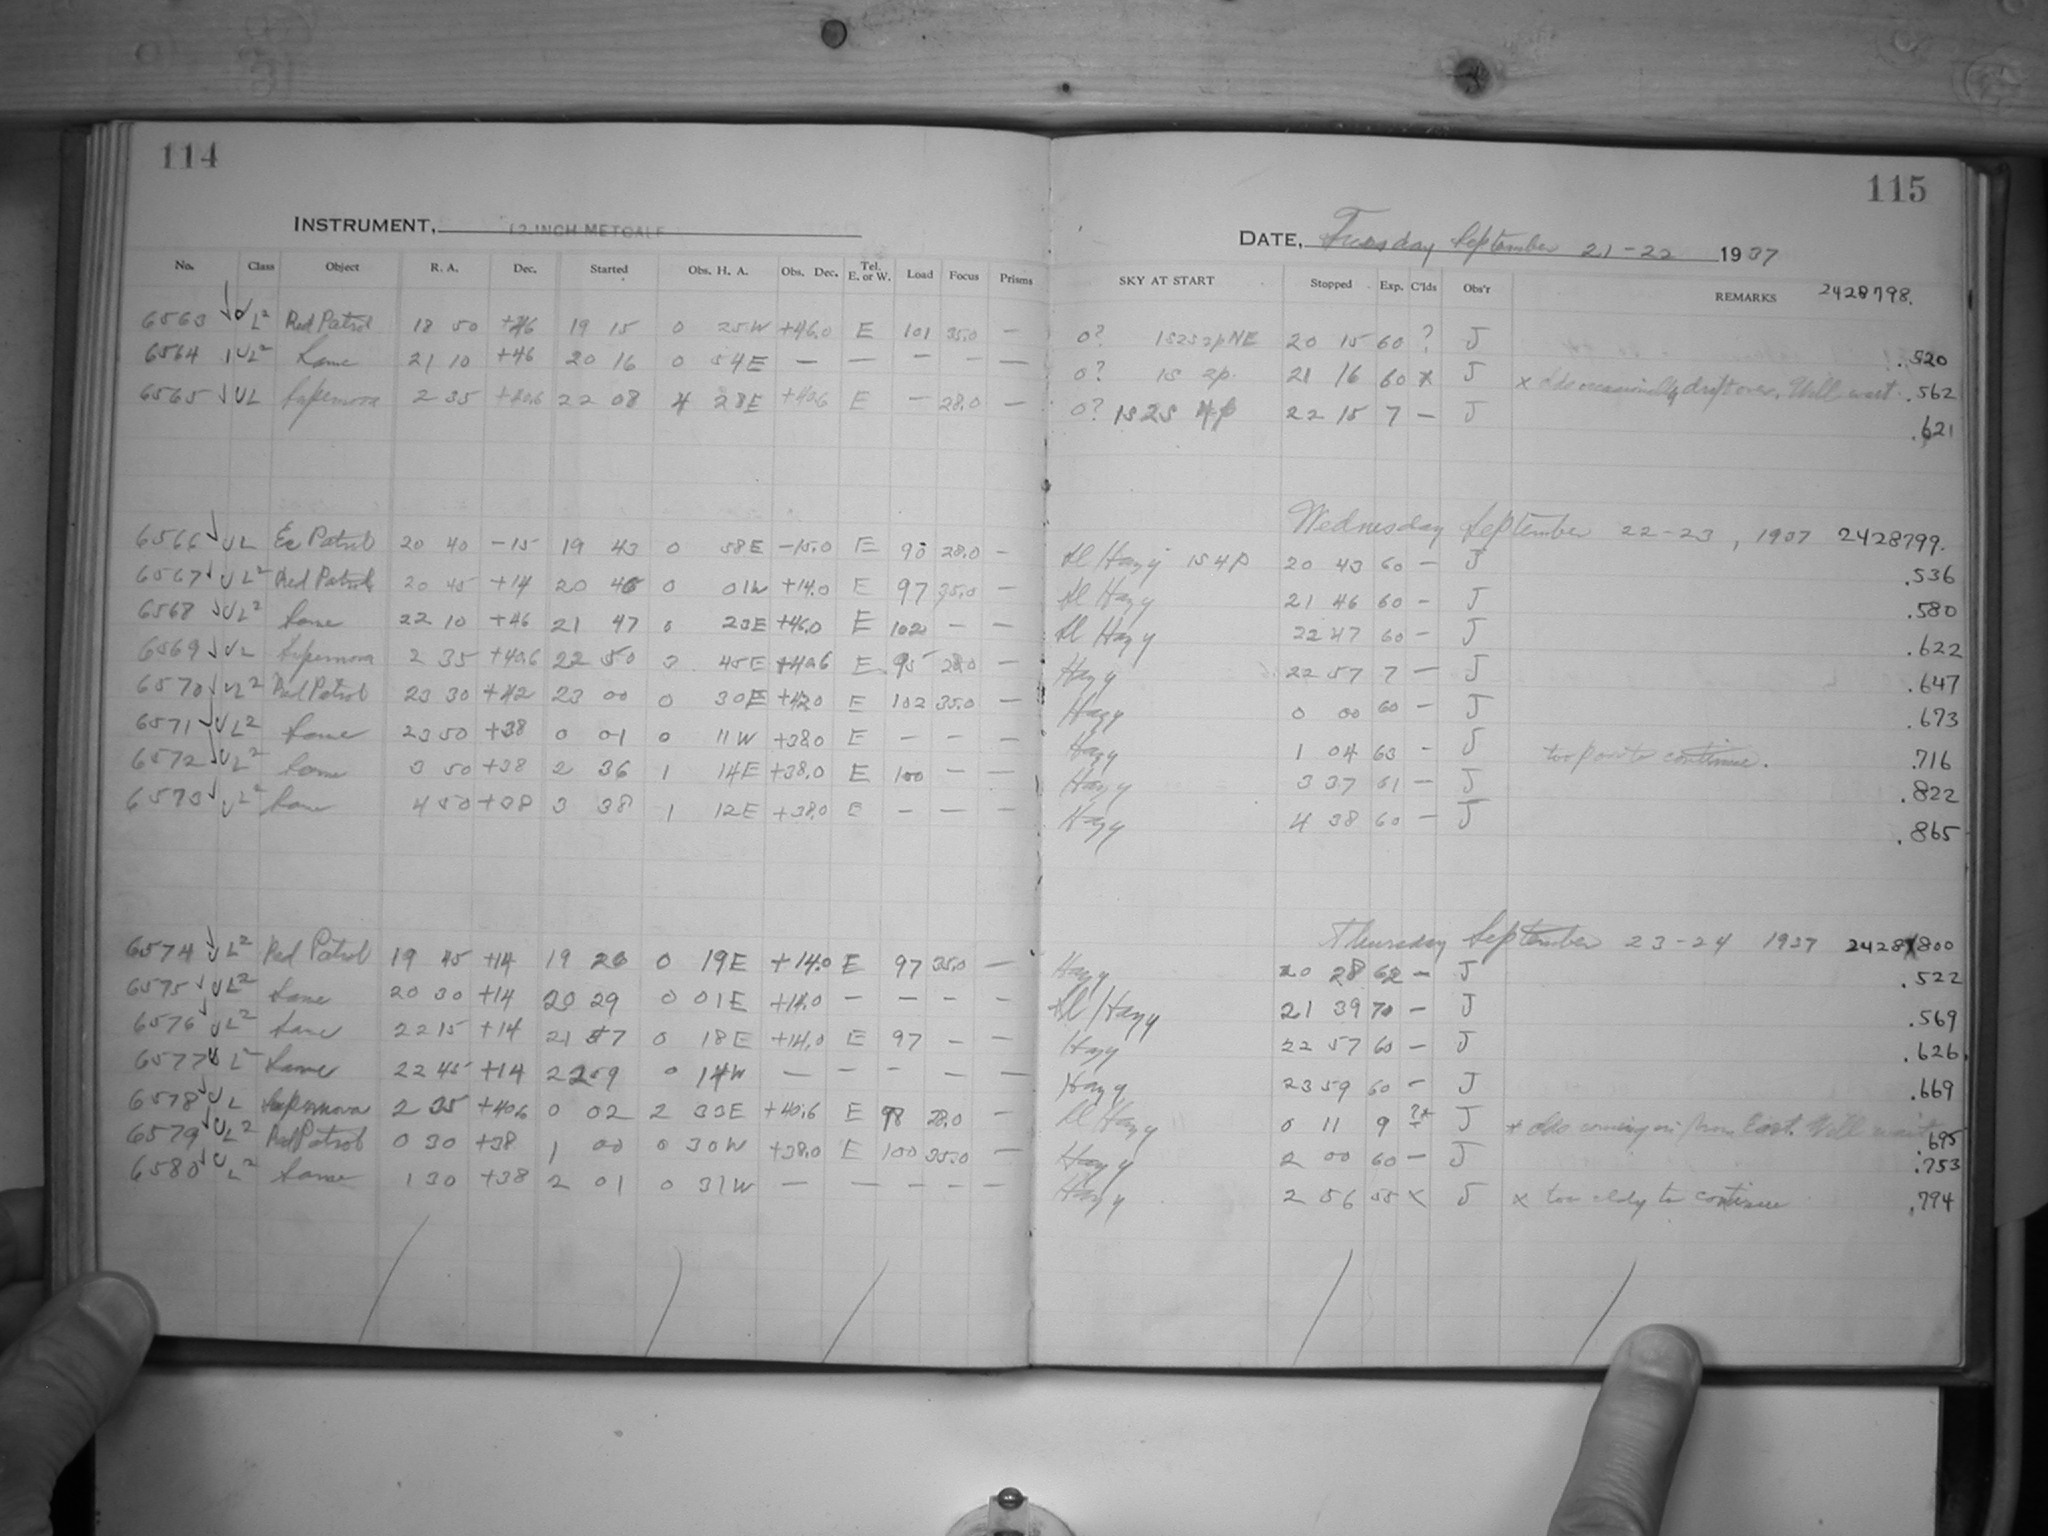 114
INSTRUMENT, 12-INCH METCALF
No. Class Object R. A. Dec. Started Obs. H. A. Obs. Dec. Tel. E. or W. Load Focus Prisms
6563 UL² Red Patrol 18 50 +46 19 15 0 25W +46.0 E 101 35.0 —
6564 UL² Same 21 10 +46 20 16 0 54E — — — — —
6565 UL Supernova 2 35 +40.6 22 08 4 28E +40.6 E — 28.0 —
6566 UL Ec Patrol 20 40 -15 19 43 0 58E -15.0 E 90 28.0 —
6567 UL² Red Patrol 20 45 +14 20 46 0 01W +14.0 E 97 35.0 —
6568 UL² Same 22 10 +46 21 47 0 23E +46.0 E 102 — —
6569 UL Supernova 2 35 +40.6 22 50 3 45E +40.6 E 95 28.0 —
6570 UL² Red Patrol 23 30 +42 23 00 0 30E +42.0 E 102 35.0 —
6571 UL² Same 23 50 +38 0 01 0 11W +38.0 E — — —
6572 UL² Same 3 50 +38 2 36 1 14E +38.0 E 100 — —
6573 UL² Same 4 50 +38 3 38 1 12E +38.0 E — — —
6574 UL² Red Patrol 19 45 +14 19 26 0 19E +14.0 E 97 35.0 —
6575 UL² Same 20 30 +14 20 29 0 01E +14.0 — — — —
6576 UL² Same 22 15 +14 21 57 0 18E +14.0 E 97 — —
6577 L² Same 22 45 +14 22 59 0 14W — — — — —
6578 UL Supernova 2 35 +40.6 0 02 2 33E +40.6 E 98 28.0 —
6579 UL² Red Patrol 0 30 +38 1 00 0 30W +38.0 E 100 35.0 —
6580 UL² Same 1 30 +38 2 01 0 31W — — — — —
115
DATE, Tuesday September 21-22 1937
SKY AT START Stopped Exp. C'lds Obs'r REMARKS 2428798.
0? 1s2s2pNE 20 15 60 ? J .520
0? 1s 2p. 21 16 60 x J x clds occasionally drift over. Will wait. .562
0? 1s 2s 4p 22 15 7 — J .621
Wednesday September 22-23, 1937 2428799.
Sl Hazy 1s 4p 20 43 60 — J .536
Sl Hazy 21 46 60 — J .580
Sl Hazy 22 47 60 — J .622
Hazy 22 57 7 — J .647
Hazy 0 00 60 — J .673
Hazy 1 04 63 — J too poor to continue. .716
Hazy 3 37 61 — J .822
Hazy 4 38 60 — J .865
Thursday September 23-24 1937 2428800
Hazy 20 28 62 — J .522
Sl Hazy 21 39 70 — J .569
Hazy 22 57 60 — J .626
Hazy 23 59 60 — J .669
Sl Hazy 0 11 9 ?* J * clds coming in from East. Will wait .695
Hazy 2 00 60 — J .753
Hazy 2 56 55 x J x too cldy to continue .794